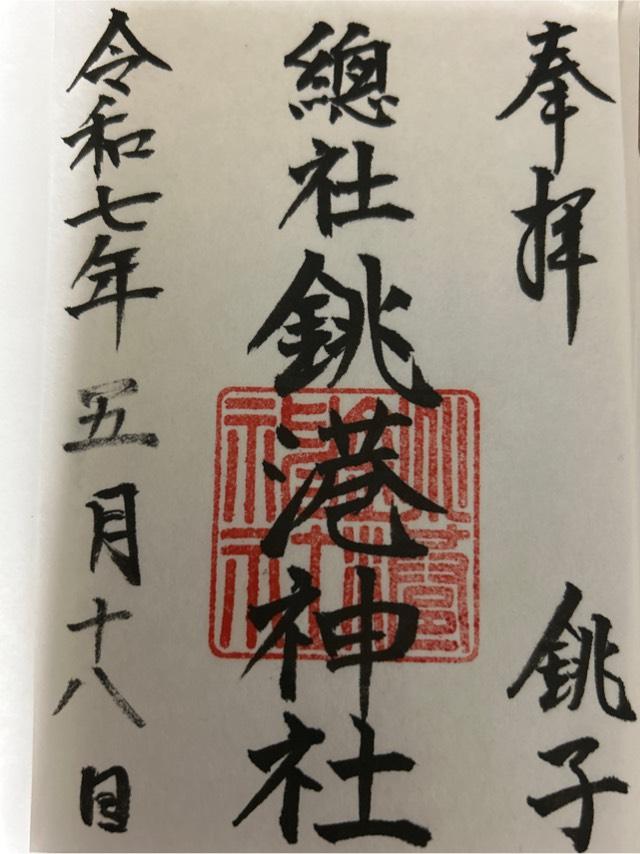 奉拝 銚子
總社銚港神社
令和七年五月十八日